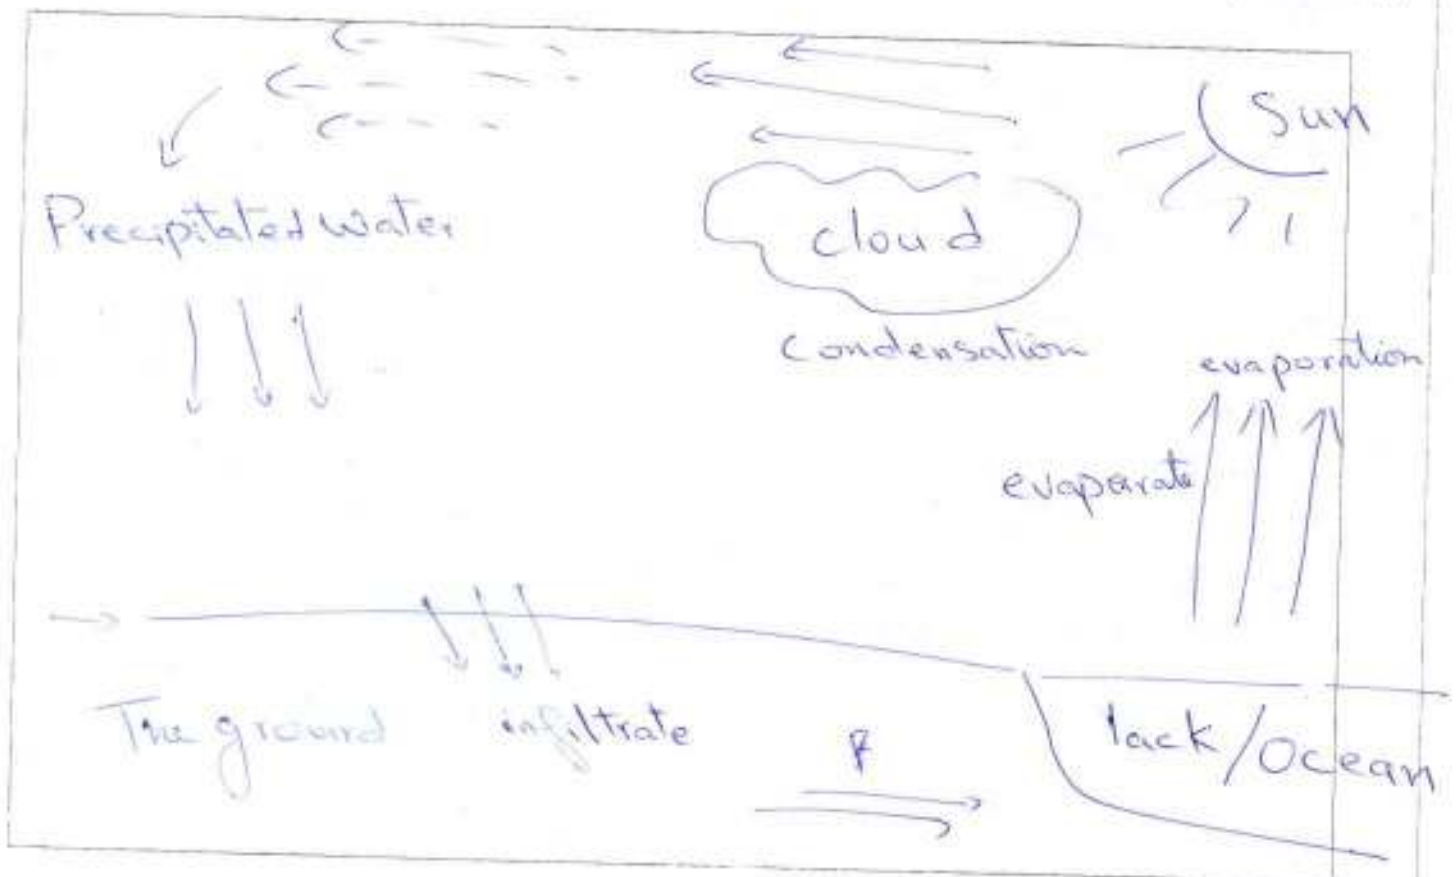 Sun
Precipitated water
cloud
Condensation
evaporation
evaporate
The ground
infiltrate
lack/Ocean